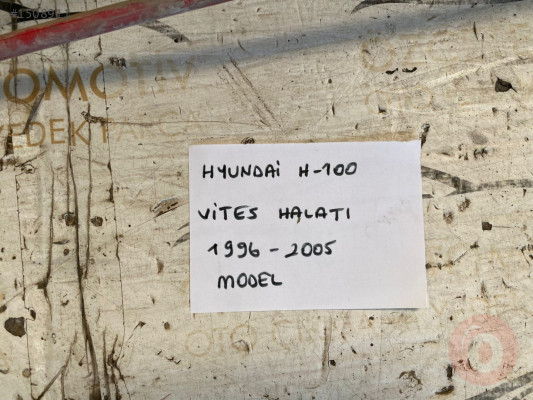 OMOTİV
YEDEK PARÇA
HYUNDAİ H-100
VİTES HALATI
1996-2005
MODEL